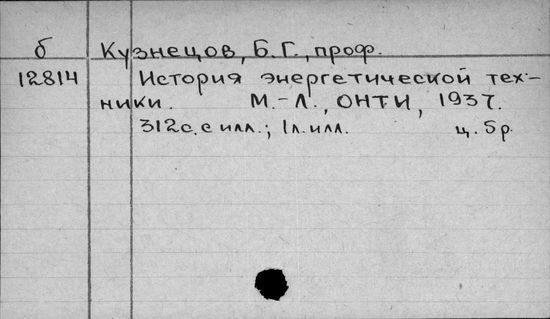 б Кузнецов, Б.Г., проф.
12814 История энергетической тех-
ники. М.-Л., ОНТИ, 1937.
312с. с илл.; 1л. илл. ц. 5р.